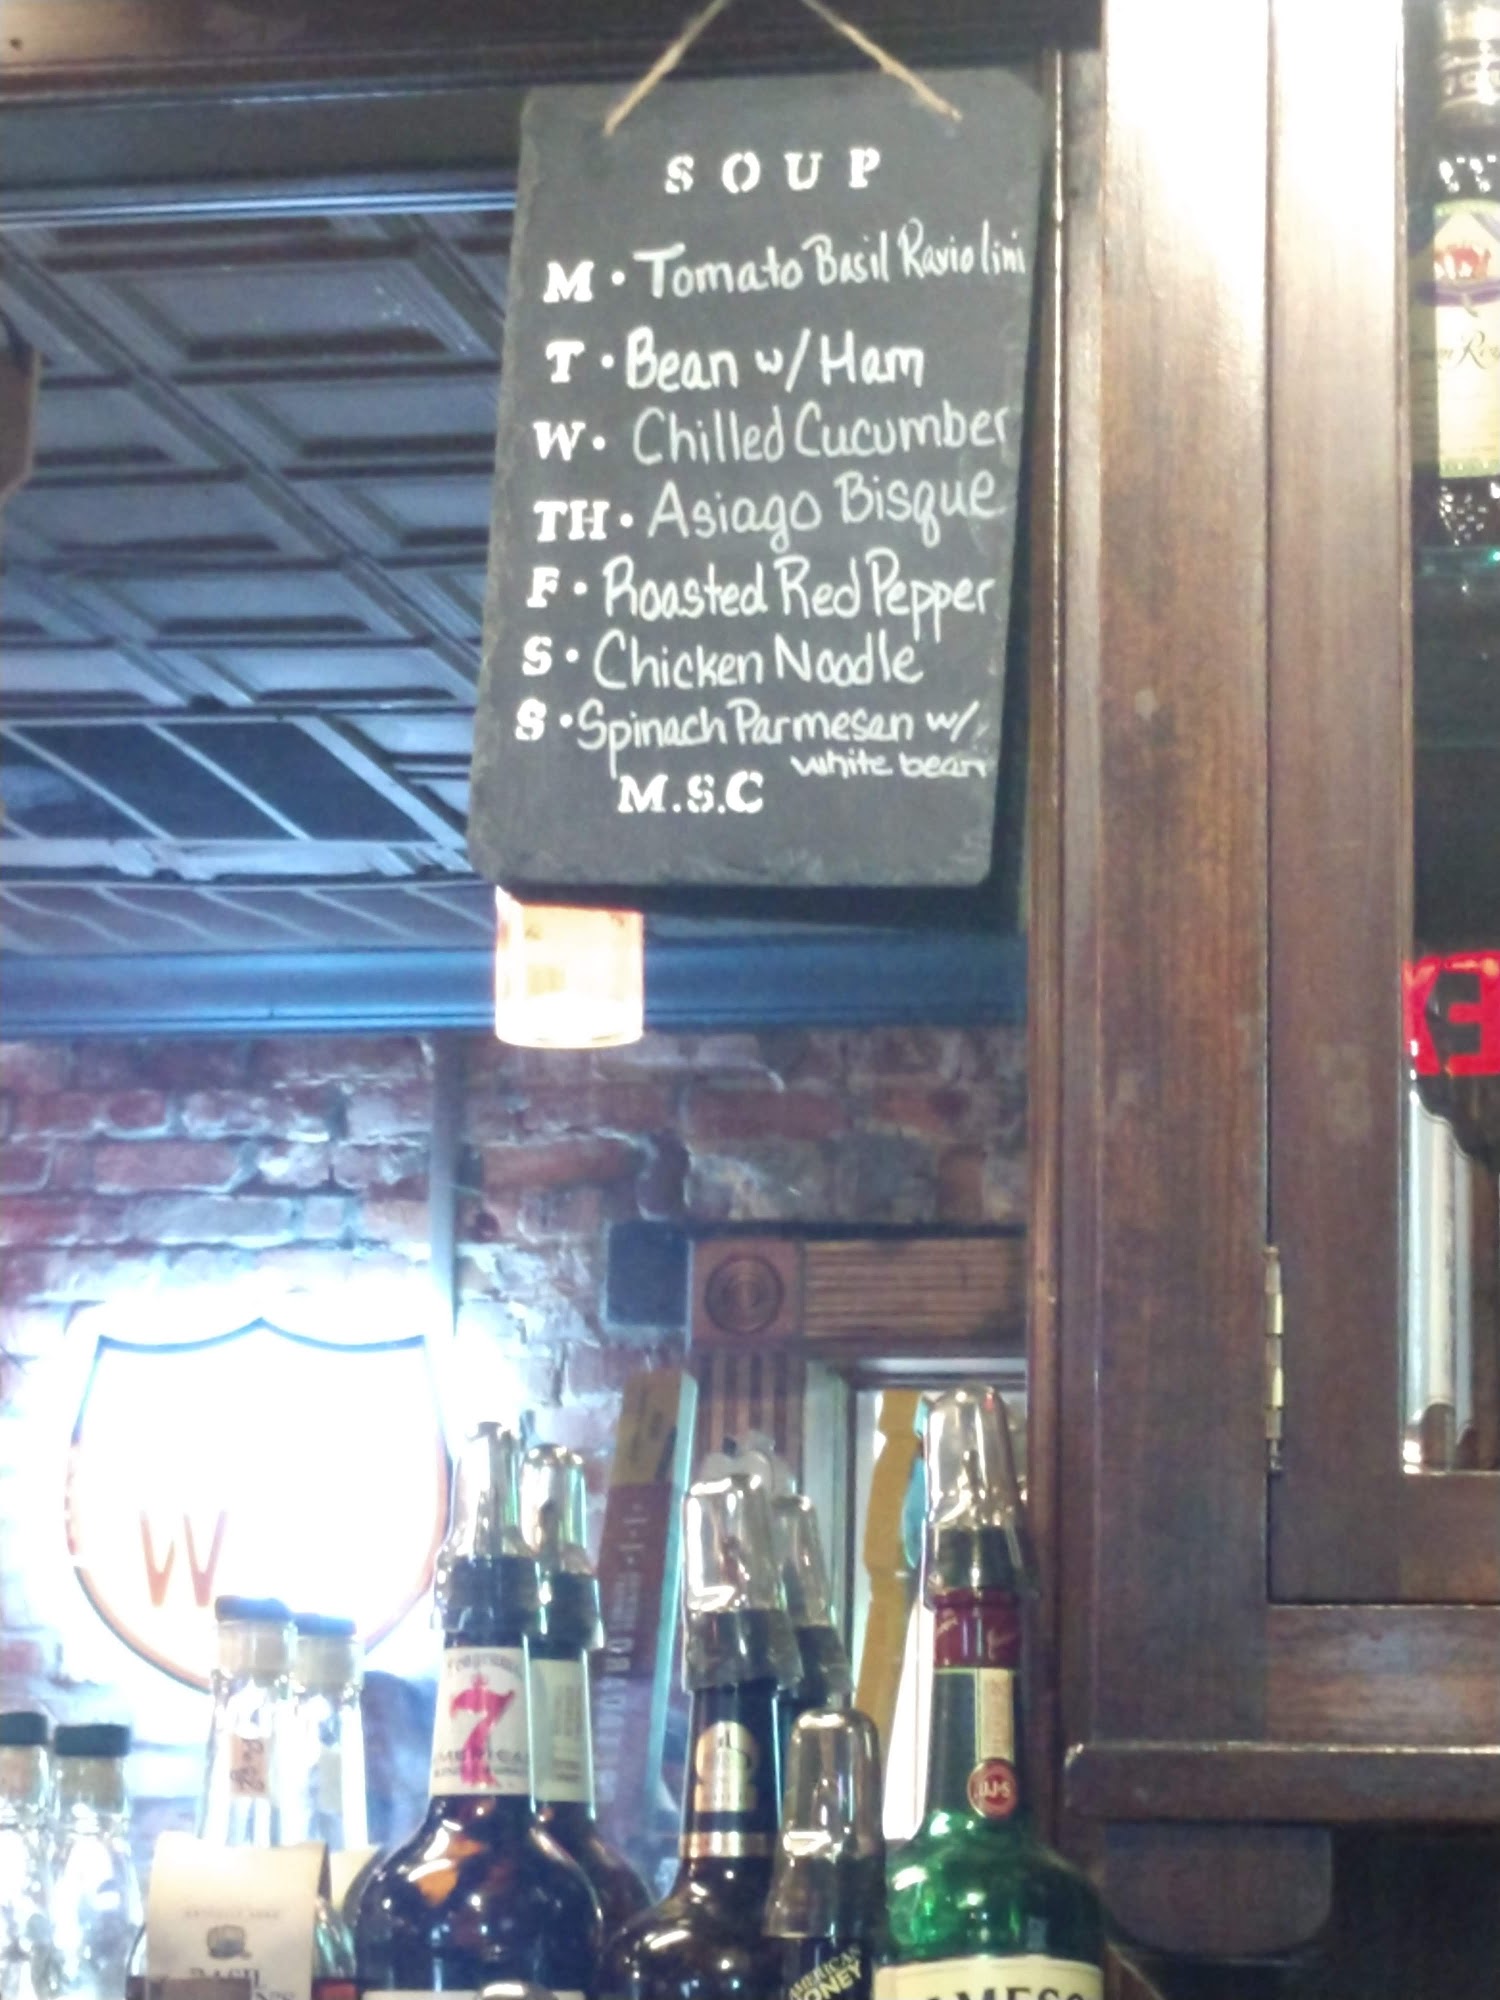 SOUP
M • Tomato Basil Raviolini
T • Bean w/ Ham
W • Chilled Cucumber
TH • Asiago Bisque
F • Roasted Red Pepper
S • Chicken Noodle
S • Spinach Parmesan w/
white bean
M.S.C
W
7
AMERICAN
JJ&S
AMERICAN
HONEY